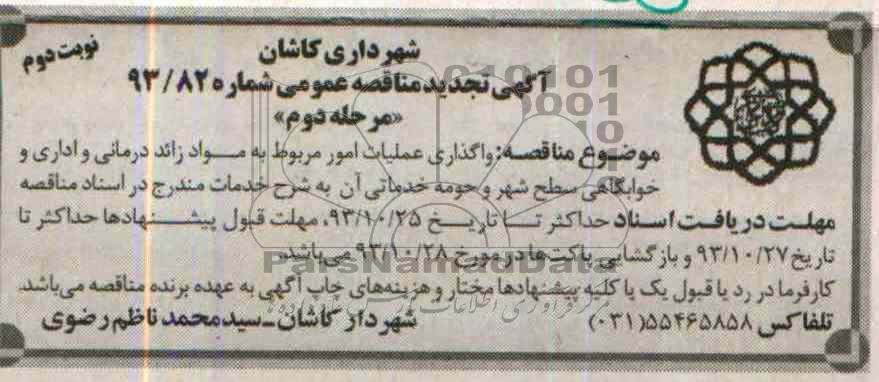 نوبت دوم
شهرداری کاشان
آگهی تجدید مناقصه عمومی شماره ۹۳/۸۲
«مرحله دوم»
موضوع مناقصه: واگذاری عملیات امور مربوط به مواد زائد درمانی و اداری و
خوابگاهی سطح شهر و حومه خدماتی آن به شرح خدمات مندرج در اسناد مناقصه
مهلت دریافت اسناد حداکثر تا تاریخ ۹۳/۱۰/۲۵، مهلت قبول پیشنهادها حداکثر تا
تاریخ ۹۳/۱۰/۲۷ و بازگشایی پاکت‌ها در مورخ ۹۳/۱۰/۲۸ می‌باشد.
کارفرما در رد یا قبول یک یا کلیه پیشنهادها مختار و هزینه‌های چاپ آگهی به عهده برنده مناقصه می‌باشد.
تلفاکس ۵۵۴۶۵۸۵۸ (۰۳۱)
شهردار کاشان ـ سیدمحمد ناظم رضوی
ParsNamadData